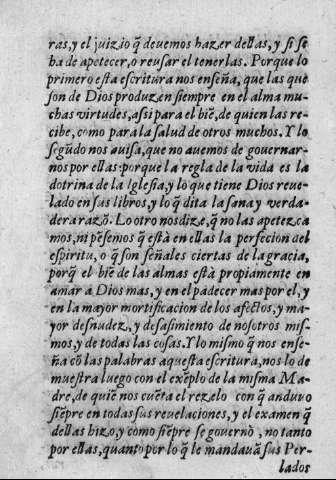 ras, y el juizio q̃ devemos hazer dellas, y si se
ha de apetecer, o reusar el tenerlas. Porque lo
primero esta escritura nos enseña, que las que
son de Dios produzen siempre en el alma mu-
chas virtudes, assi para el biẽ, de quien las re-
cibe, como para la salud de otros muchos. Y lo
segũdo nos avisa, que no avemos de governar-
nos por ellas: porque la regla de la vida es la
dotrina de la Iglesia, y lo que tiene Dios reve-
lado en sus libros, y lo q̃ dita la sana y verda-
dera razõ. Lo otro nos dize, q̃ no las apetezca
mos, ni pẽsemos q̃ està en ellas la perfecion del
espiritu, o q̃ son señales ciertas de la gracia,
porq̃ el biẽ de las almas està propiamente en
amar à Dios mas, y en el padecer mas por el, y
en la mayor mortificacion de los afectos, y ma-
yor desnudez, y desasimiento de nosotros mis-
mos, y de todas las cosas. Y lo mismo q̃ nos ense-
ña cõ las palabras aquesta escritura, nos lo de
muestra luego con el exẽplo de la misma Ma-
dre, de quiẽ nos cuẽta el rezelo con q̃ anduvo
siẽpre en todas sus revelaciones, y el examen q̃
dellas hizo, y como siẽpre se governò, no tanto
por ellas, quanto por lo q̃ le mandavã sus Per-
lados